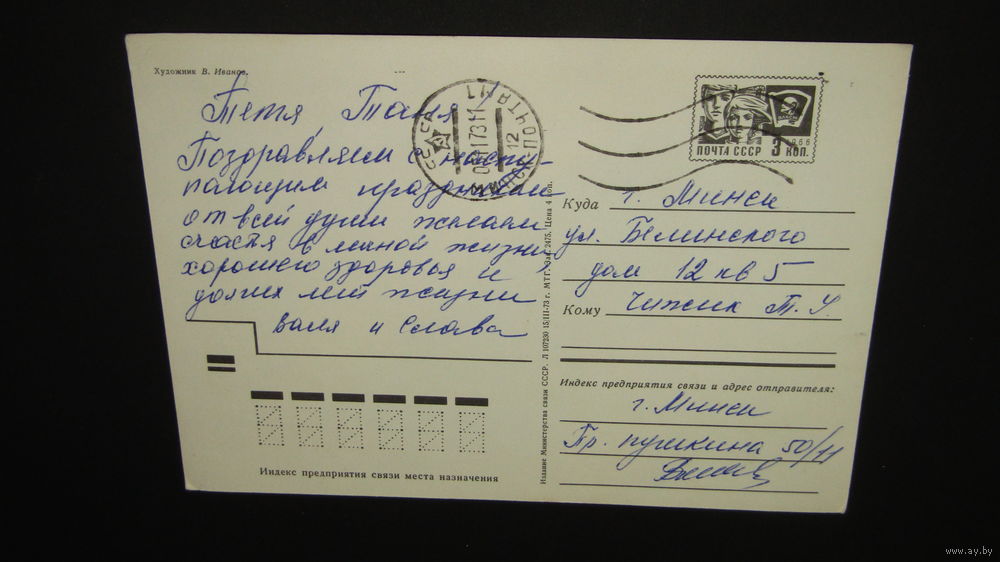 Художник В. Иванов.
Тетя Таня
Поздравляем с насту-
пающим праздником
от всей души желаем
счастя в личной жизни,
хорошего здоровья и
долгих лет жизни
Валя и Слава
ПОЧТА СССР 3 КОП.
1966
ВЛКСМ
СССР
МИНСК-ПОЧТАМТ
12
Куда г. Минск
ул. Белинского
дом 12 кв 5
Кому Чижик Т. У.
Индекс предприятия связи и адрес отправителя:
г. Минск
Пр. пушкина 50/11
Индекс предприятия связи места назначения
Издание Министерства связи СССР. Л 107230 15/III-73 г. МТГ. Зак. 2475. Цена 4 коп.
www.ay.by